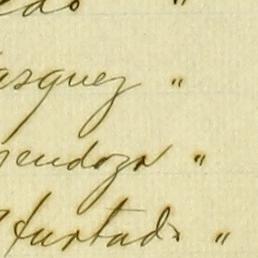 edo "
asquez "
endoza "
Hurtado "